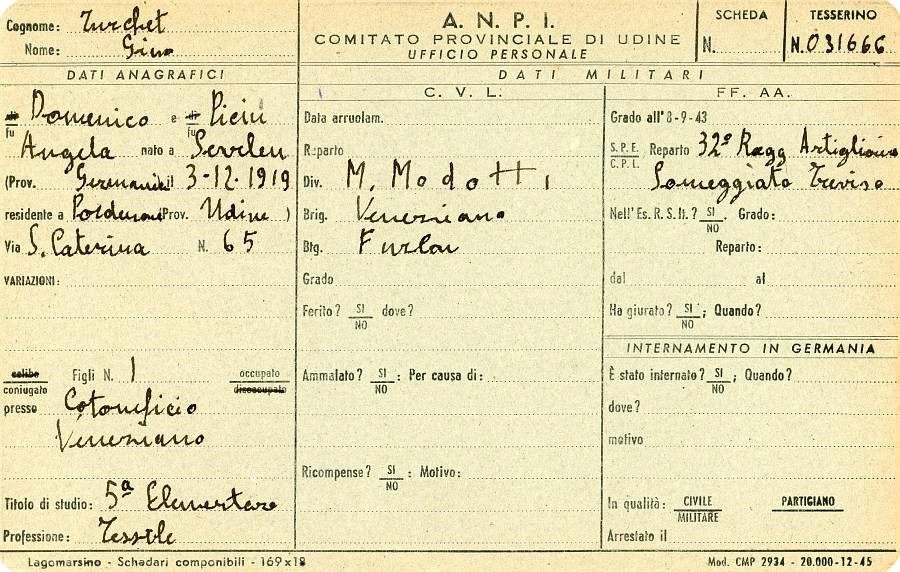 Cognome: Turchet
Nome: Gino
A. N. P. I.
COMITATO PROVINCIALE DI UDINE
UFFICIO PERSONALE
SCHEDA
N.
TESSERINO
N. 031666
DATI ANAGRAFICI
di fu Domenico e di fu Piciu
Angela nato a
(Prov. Germania il 3-12-1919
residente a Pordenone (Prov. Udine )
Via S. Caterina N. 65
VARIAZIONI:
celibe
coniugato
Figli N. 1
occupato
disoccupato
presso Cotonificio
Veneziano
Titolo di studio: 5ª Elementare
Professione: Tessile
DATI MILITARI
C. V. L.
Data arruolam.
Reparto
Div. M. Modotti
Brig. Veneziano
Btg. Furlan
Grado
Ferito? SI NO dove?
Ammalato? SI NO : Per causa di:
Ricompense? SI NO : Motivo:
FF. AA.
Grado all'8-9-43
S.P.E. C.P.L. Reparto 32° Ragg Artiglieria
Someggiato Treviso
Nell'Es. R. S. It.? SI NO . Grado:
Reparto:
dal al
Ha giurato? SI NO ; Quando?
INTERNAMENTO IN GERMANIA
È stato internato? SI NO ; Quando?
dove?
motivo
In qualità: CIVILE MILITARE PARTIGIANO
Arrestato il
Lagomarsino - Schedari componibili - 169x18
Mod. CMP 2934 - 20.000-12-45